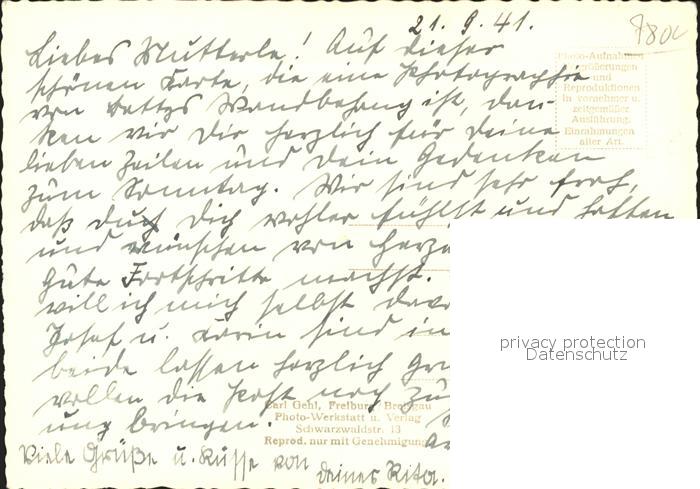 21. 9. 41.
Liebes Mutterle! Auf dieser
schönen Karte, die eine Photographie
von Wandbehang ist, dan-
ken wir Dir herzlich für Deine
lieben Zeilen und Dein Gedenken
zum Sonntag. Wir sind sehr froh,
daß Du Dich wohler fühlst und hoffen
und wünschen von Herze
gute Fortschritte machst.
will ich mich selbst davo
Josef u. Karin sind in
beide lassen herzlich Gr
wollen die Post noch zu
ung bringen.
Viele Grüße u. Küsse von
Deiner Rita.
Photo-Aufnahmen
Vergrößerungen
und
Reproduktionen
in vornehmer u.
zeitgemäßer
Ausführung.
Einrahmungen
aller Art.
Carl Gehl, Freiburg / Breisgau
Photo-Werkstatt u. Verlag
Schwarzwaldstr. 13
Reprod. nur mit Genehmigung
privacy protection
Datenschutz